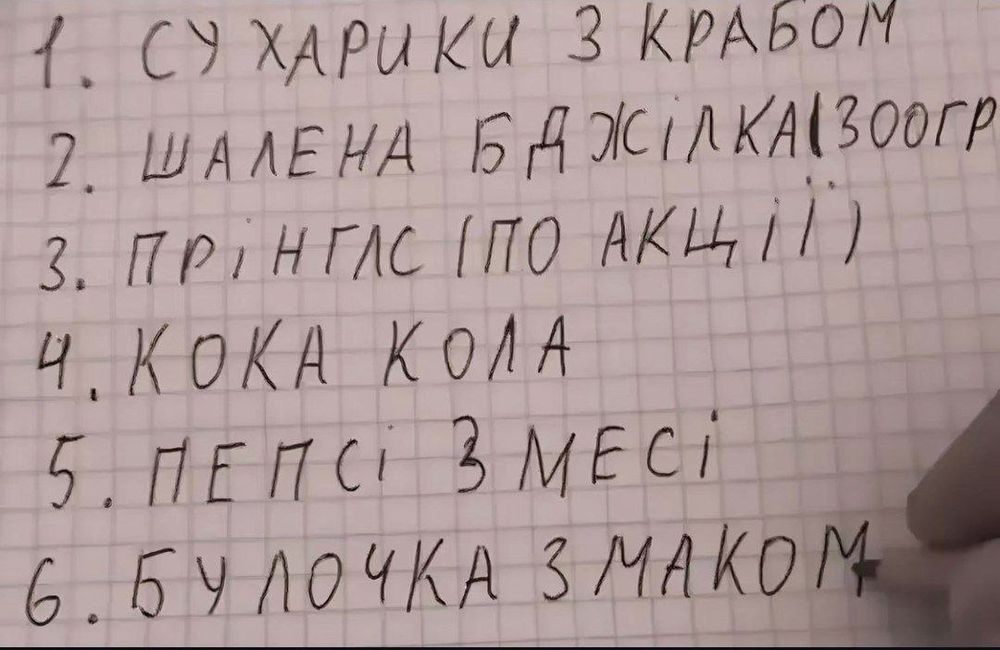 1. СУХАРИКИ З КРАБОМ
2. ШАЛЕНА БДЖІЛКА(300ГР
3. ПРІНГЛС (ПО АКЦІЇ)
4. КОКА КОЛА
5. ПЕПСІ З МЕСІ
6. БУЛОЧКА З МАКОМ